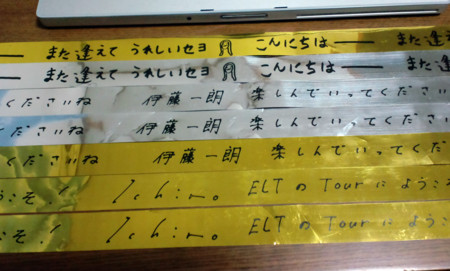 — また逢えて うれしいセヨ こんにちは — また逢え
— また逢えて うれしいセヨ こんにちは — また逢え
くださいね 伊藤一朗 楽しんでいってください
くださいね 伊藤一朗 楽しんでいってください
くださいね 伊藤一朗 楽しんでいってくだ
うこそ! Ichiro。 ELTのTourにようこそ
うこそ! Ichiro。 ELTのTourにようこ